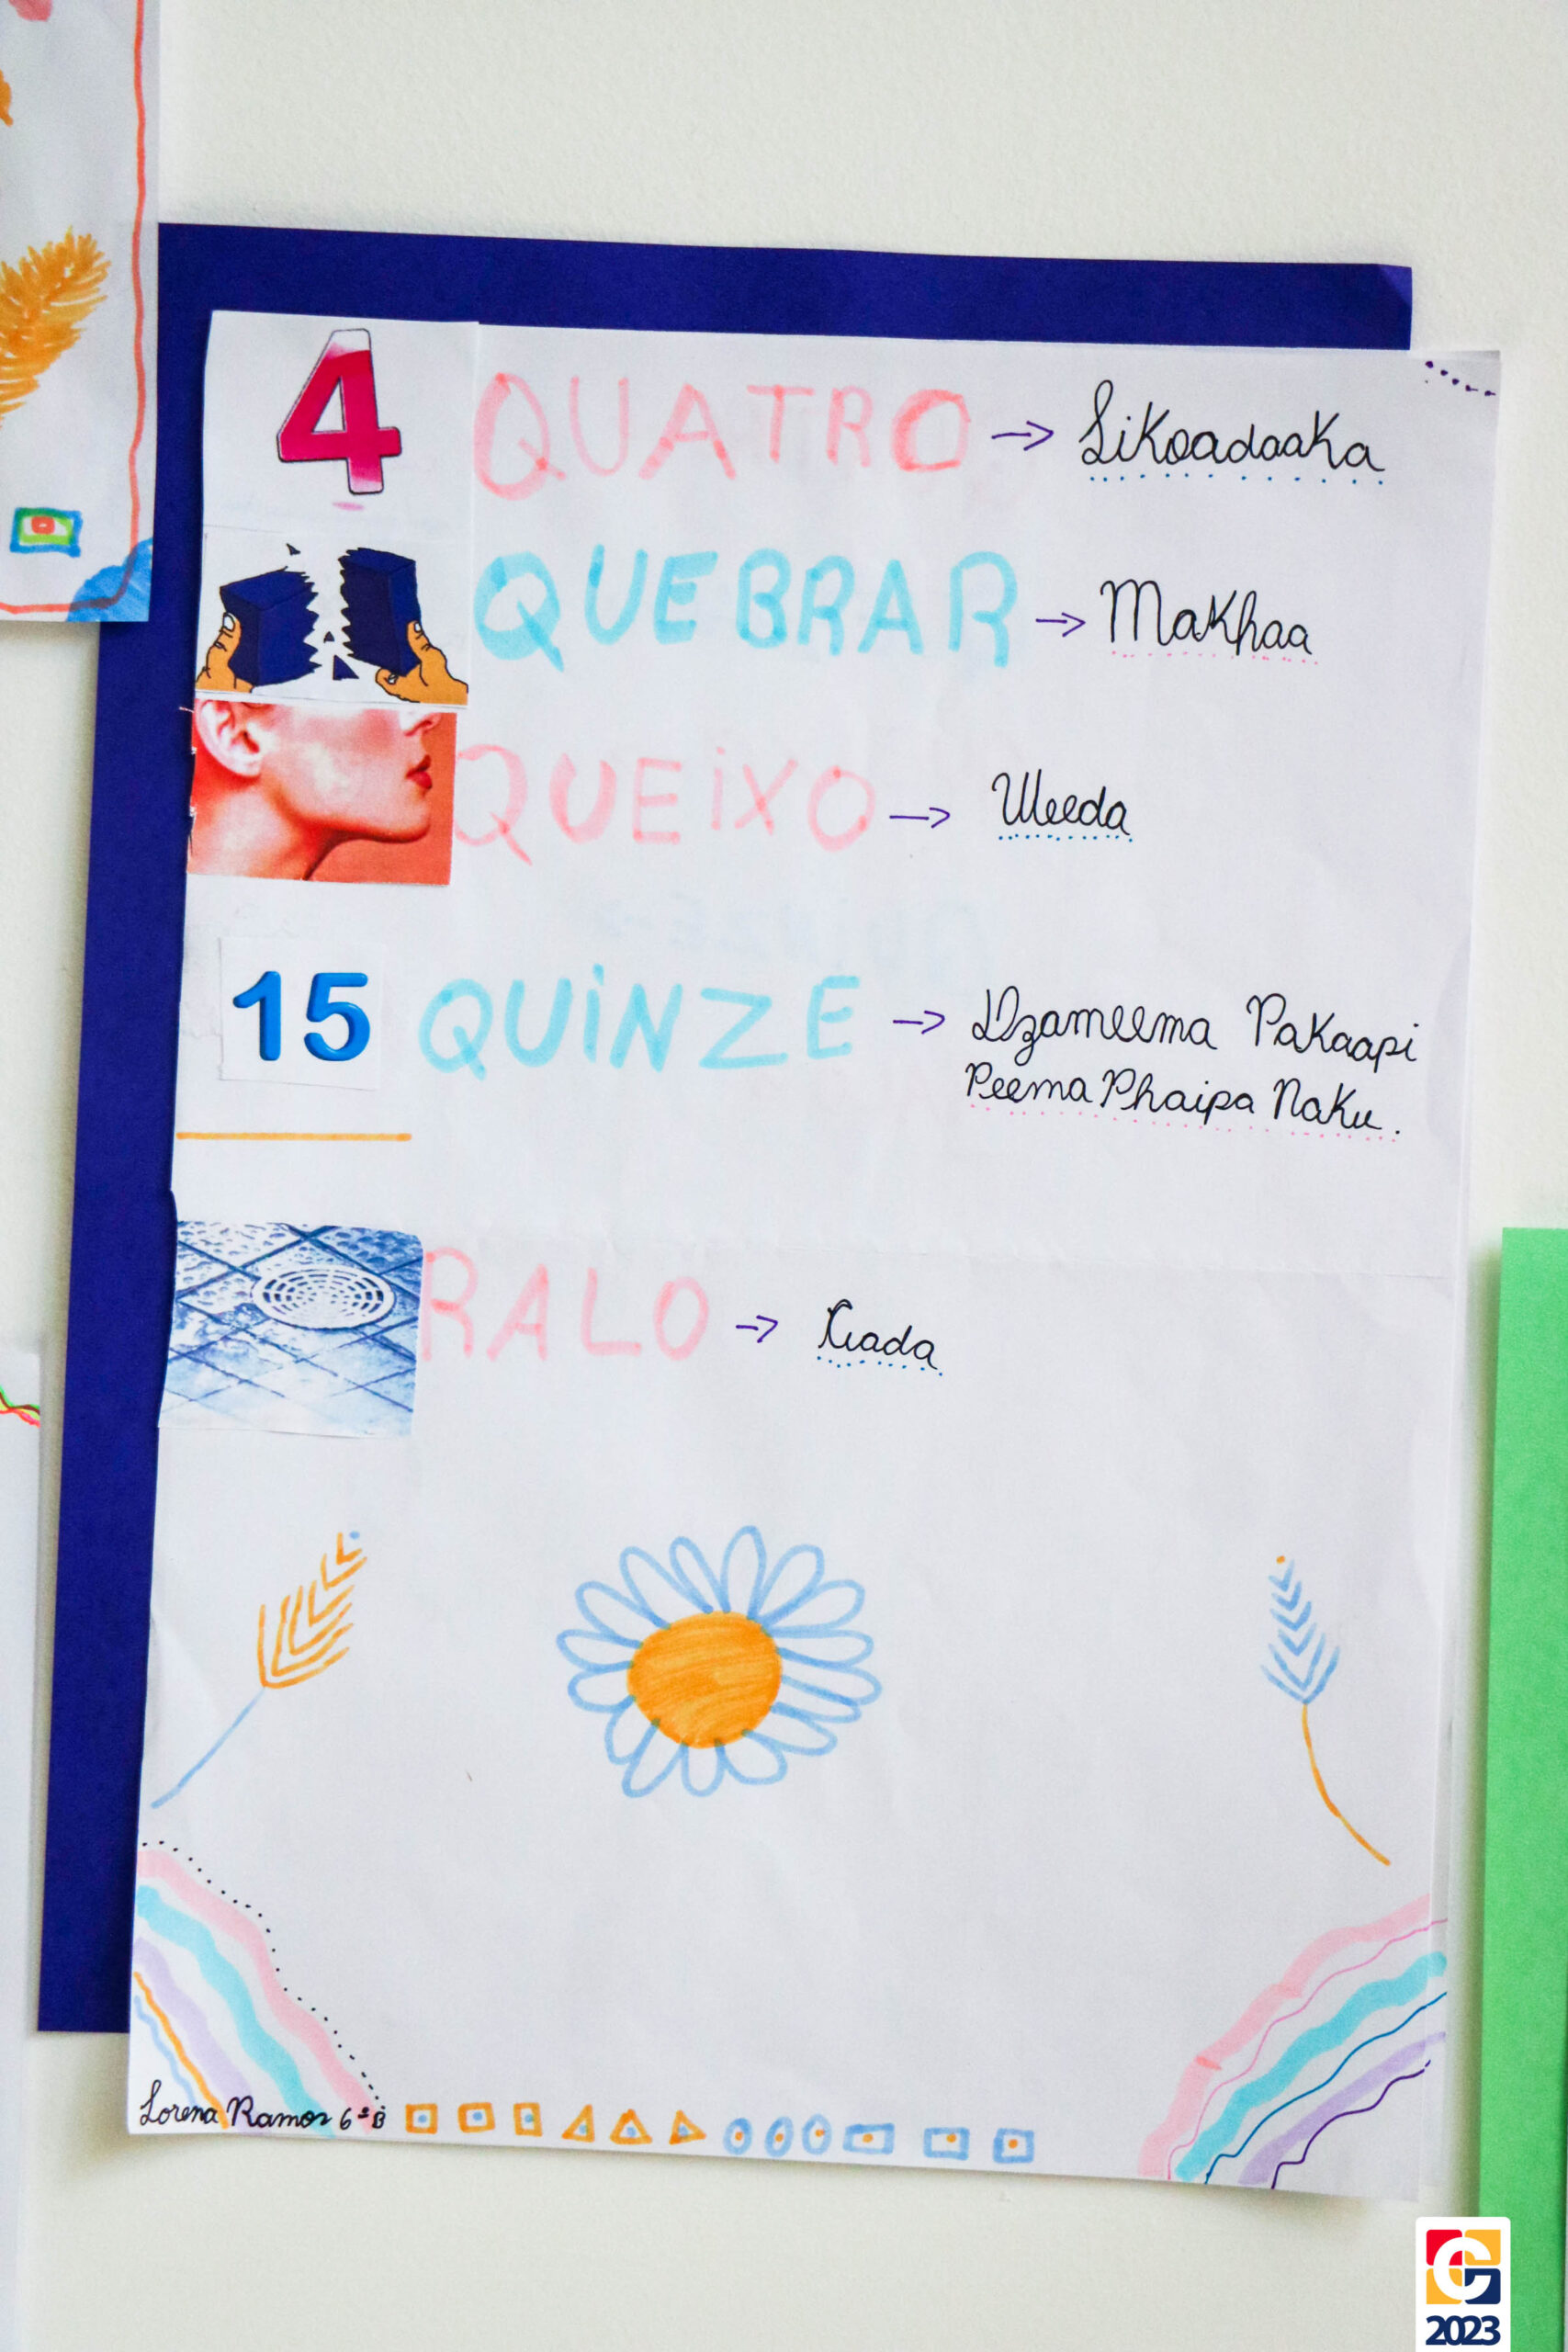 4 QUATRO → LiKoadaaKa
QUEBRAR → MaKhaa
QUEiXO → Weeda
15 QUiNZE → Dzameema PaKaapi
Peema Phaipa NaKu.
RALO → Xiada
Lorena Ramos 6ºB
2023